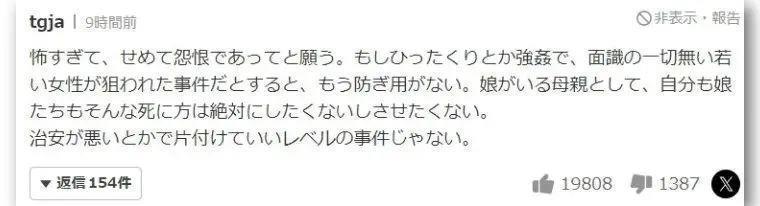 tgja | 9時間前
非表示・報告
怖すぎて、せめて怨恨であってと願う。もしひったくりとか強姦で、面識の一切無い若
い女性が狙われた事件だとすると、もう防ぎ用がない。娘がいる母親として、自分も娘
たちもそんな死に方は絶対にしたくないしさせたくない。
治安が悪いとかで片付けていいレベルの事件じゃない。
返信154件
19808 1387